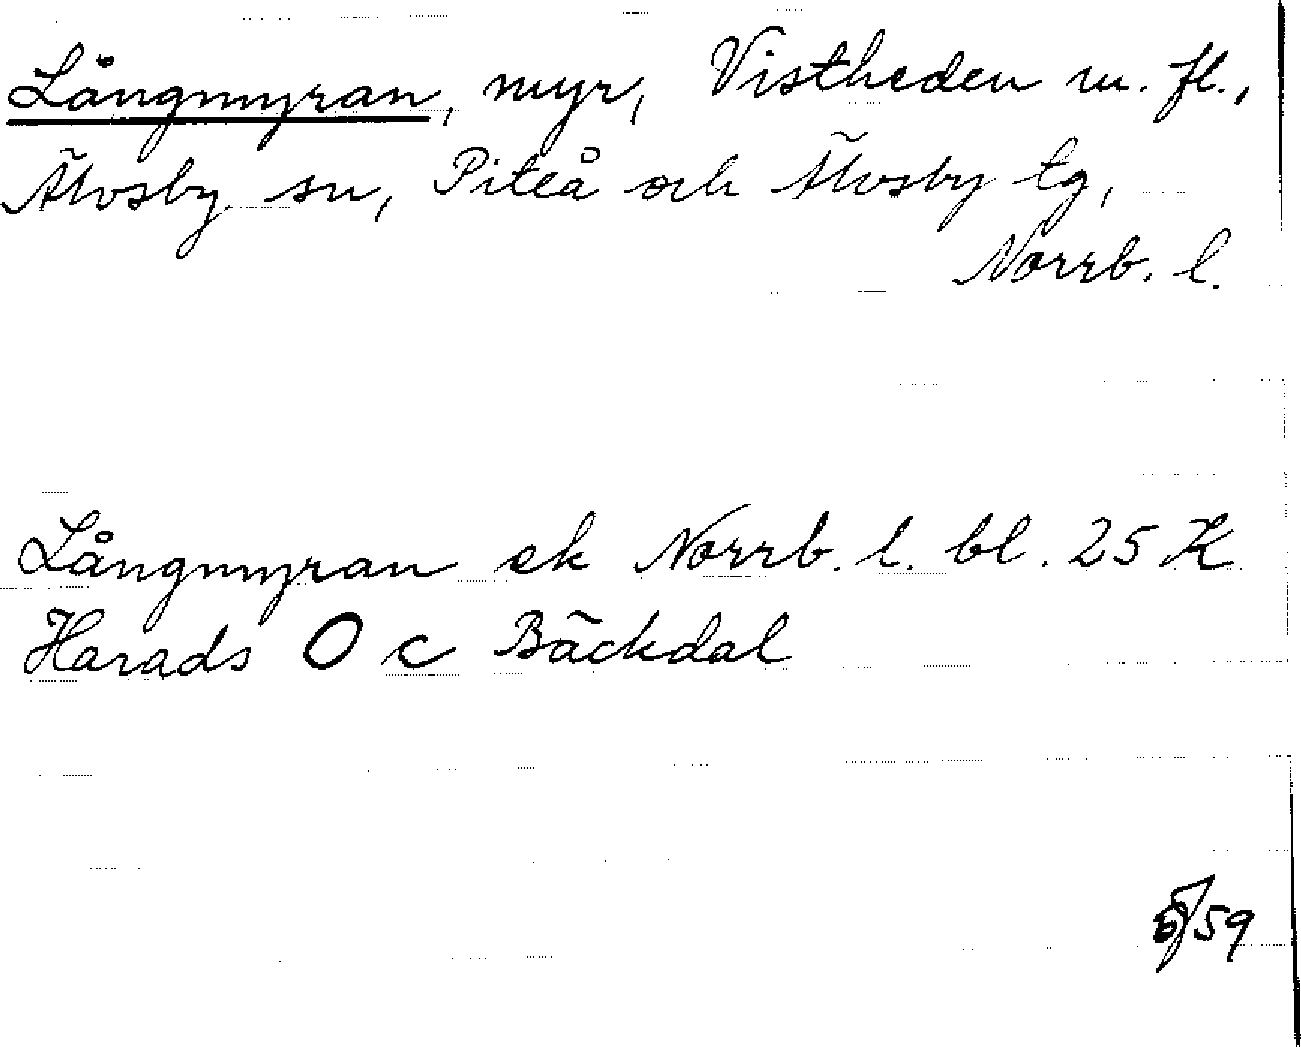 Långmyran, myr, Vistheden m. fl.,
Älvsby sn, Piteå och Älvsby tg,
Norrb. l.
Långmyran ek Norrb. l. bl. 25 K
Harads O c Bäckdal
/59